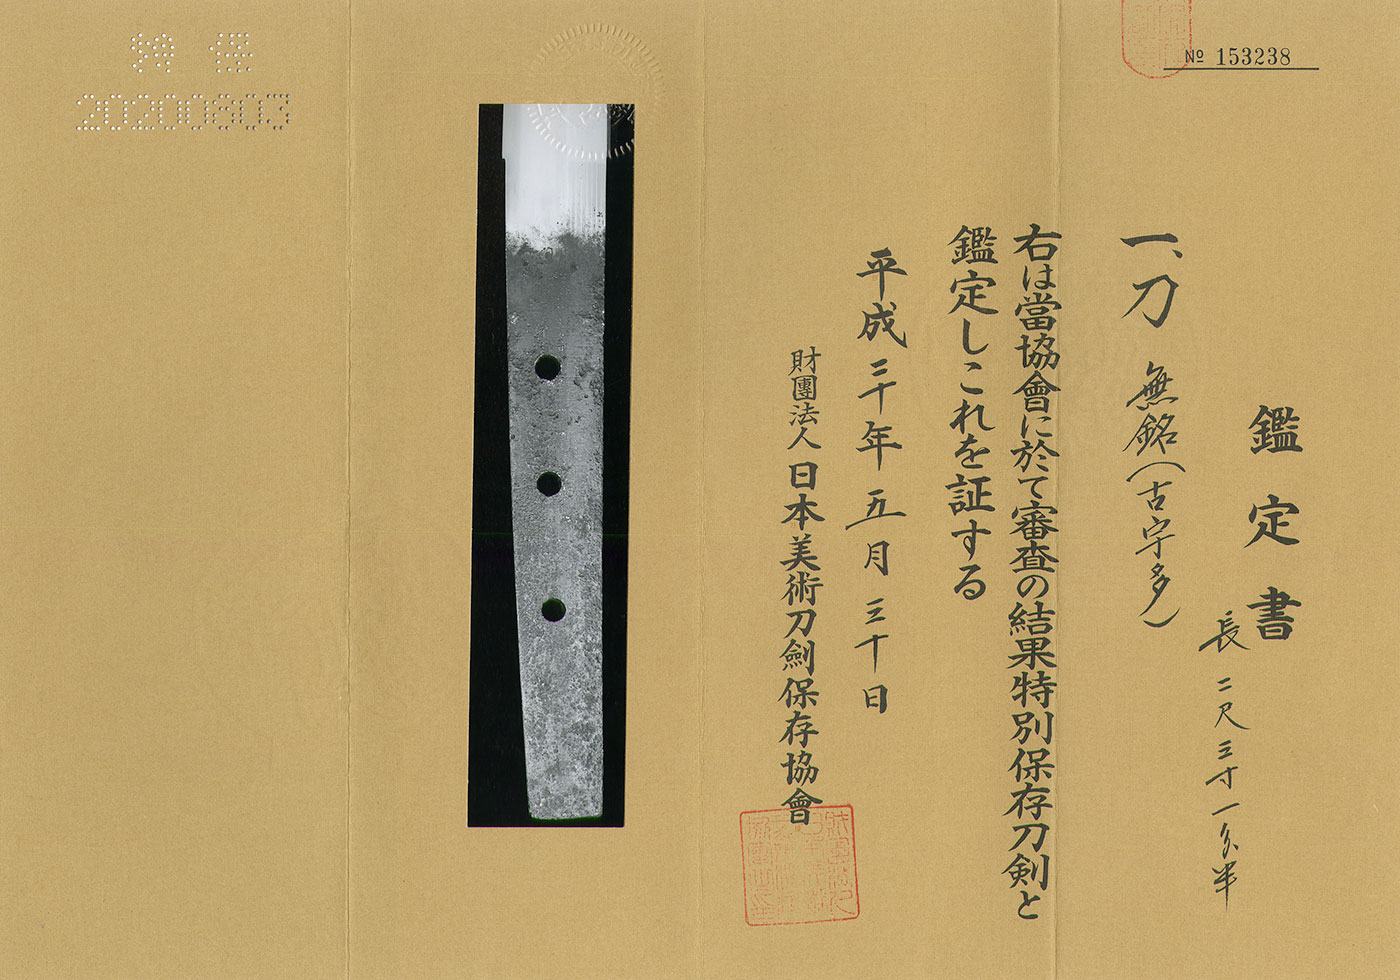 № 153238
鑑定書
一、刀 無銘(古宇多)
長 二尺三寸一分半
右は當協會に於て審査の結果特別保存刀剣と
鑑定しこれを証する
平成二十年五月三十日
財團法人日本美術刀劍保存協會
20200803